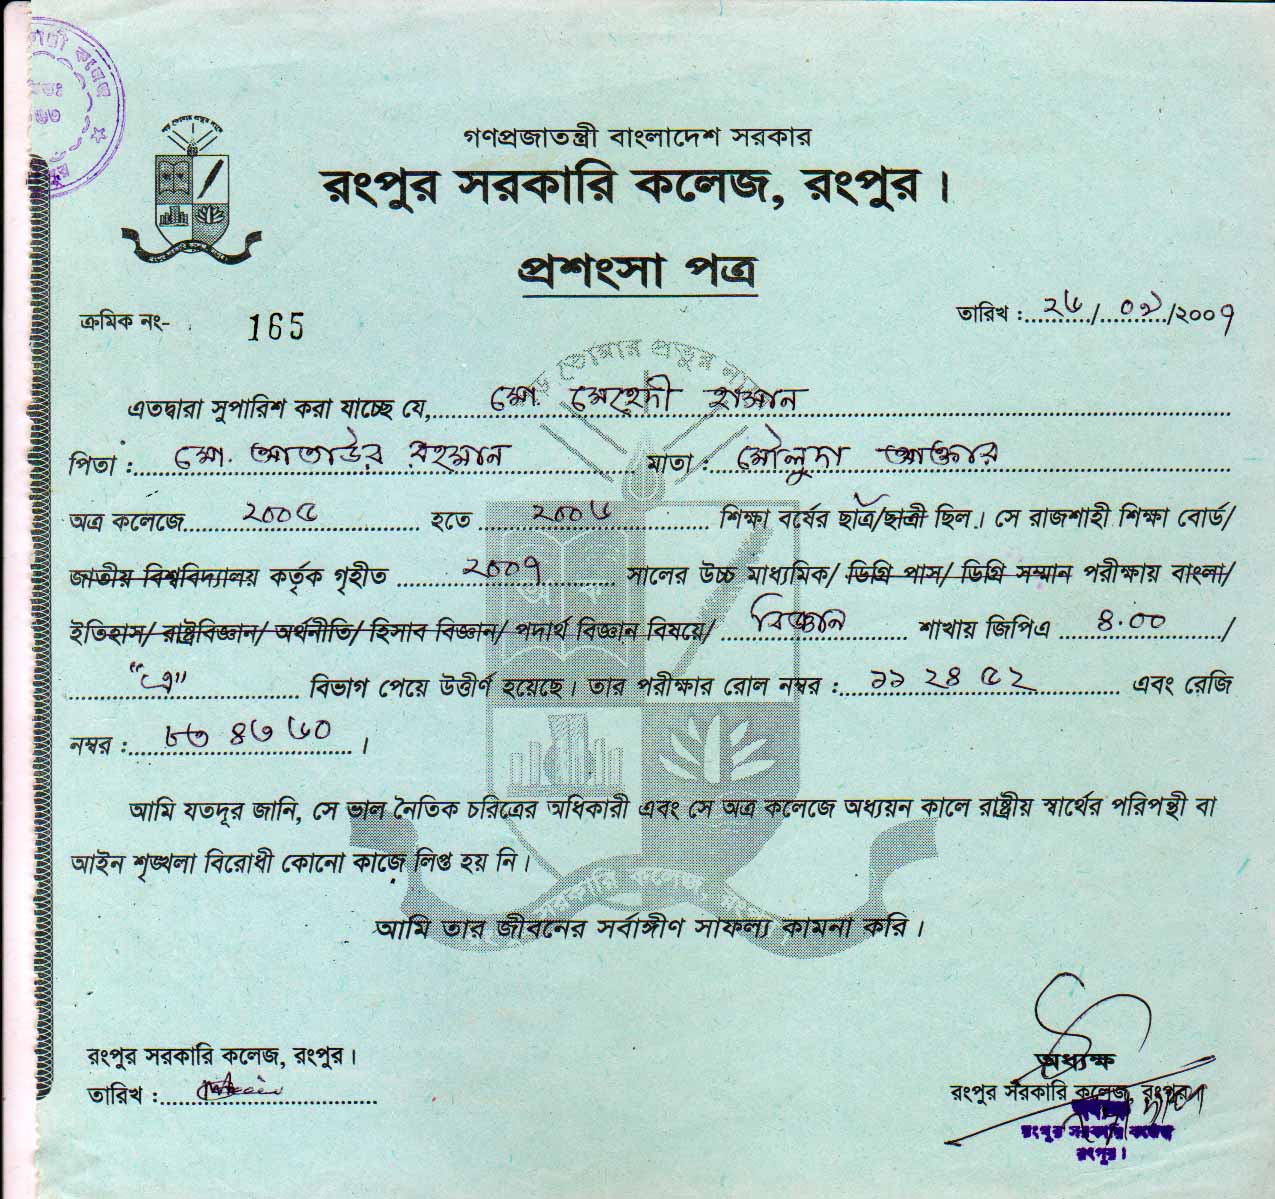 গণপ্রজাতন্ত্রী বাংলাদেশ সরকার
রংপুর সরকারি কলেজ, রংপুর।
প্রশংসা পত্র
ক্রমিক নং- 165
তারিখ : ২৬/০৯/২০০৭
এতদ্বারা সুপারিশ করা যাচ্ছে যে, মো. মেহেদী হাসান
পিতা : মো. আতাউর রহমান মাতা : মৌলুদা আক্তার
অত্র কলেজে ২০০৫ হতে ২০০৬ শিক্ষা বর্ষের ছাত্র/ছাত্রী ছিল। সে রাজশাহী শিক্ষা বোর্ড/
জাতীয় বিশ্ববিদ্যালয় কর্তৃক গৃহীত ২০০৭ সালের উচ্চ মাধ্যমিক/ ডিগ্রি পাস/ ডিগ্রি সম্মান পরীক্ষায় বাংলা/
ইতিহাস/ রাষ্ট্রবিজ্ঞান/ অর্থনীতি/ হিসাব বিজ্ঞান/ পদার্থ বিজ্ঞান বিষয়ে/ বিজ্ঞান শাখায় জিপিএ ৪.০০/
"এ" বিভাগ পেয়ে উত্তীর্ণ হয়েছে। তার পরীক্ষার রোল নম্বর : ১১২৪৫২ এবং রেজি
নম্বর : ৮৩৪৬৬০।
আমি যতদূর জানি, সে ভাল নৈতিক চরিত্রের অধিকারী এবং সে অত্র কলেজে অধ্যয়ন কালে রাষ্ট্রীয় স্বার্থের পরিপন্থী বা
আইন শৃঙ্খলা বিরোধী কোনো কাজে লিপ্ত হয় নি।
আমি তার জীবনের সর্বাঙ্গীণ সাফল্য কামনা করি।
রংপুর সরকারি কলেজ, রংপুর।
তারিখ :
অধ্যক্ষ
রংপুর সরকারি কলেজ, রংপুর।
রংপুর সরকারি কলেজ
রংপুর।